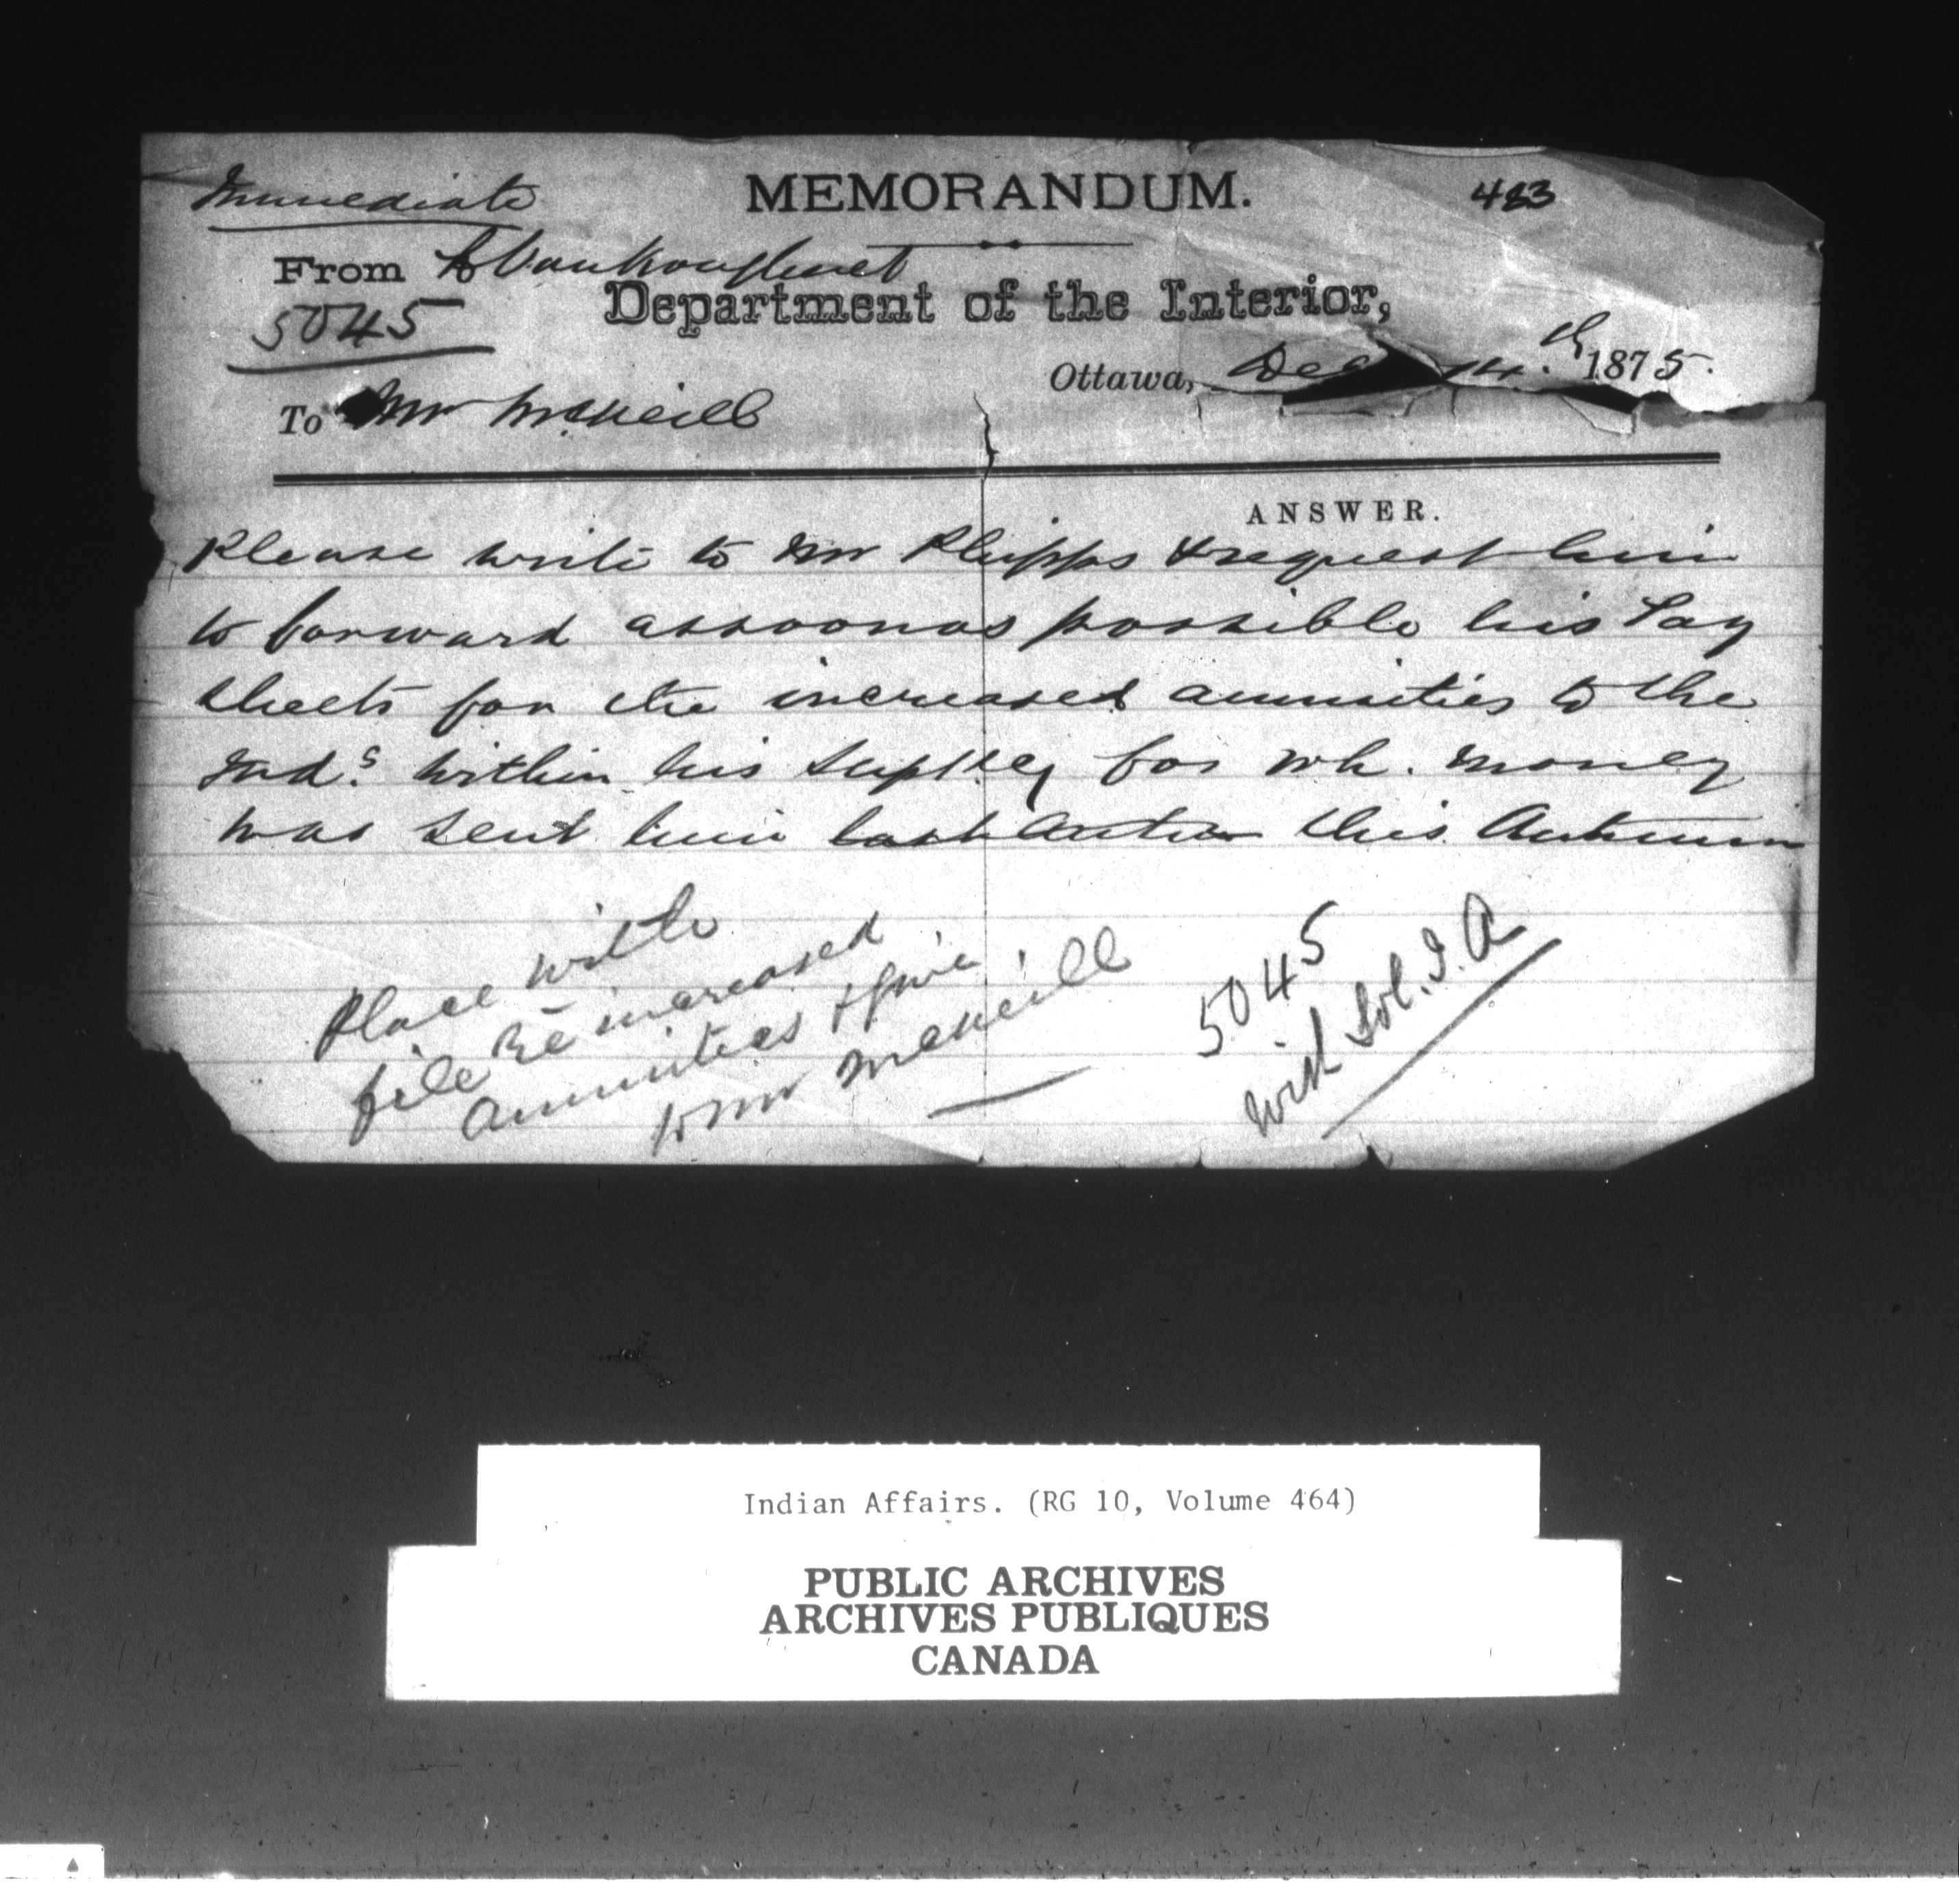 Immediate
MEMORANDUM.
483
From L Vankoughnet
5045
Department of the Interior,
Ottawa, Dec 14th 1875.
To Mr McNeill
ANSWER.
Please write to Mr Phipps & request him
to forward as soon as possible his Pay
sheets for the increased annuities to the
Inds. within his Suptcy for wh. money
was sent him last Autum this Autumn
Place with
file re increased
annuities & give
to Mr McNeill
5045
with Sol. I. A
Indian Affairs. (RG 10, Volume 464)
PUBLIC ARCHIVES
ARCHIVES PUBLIQUES
CANADA